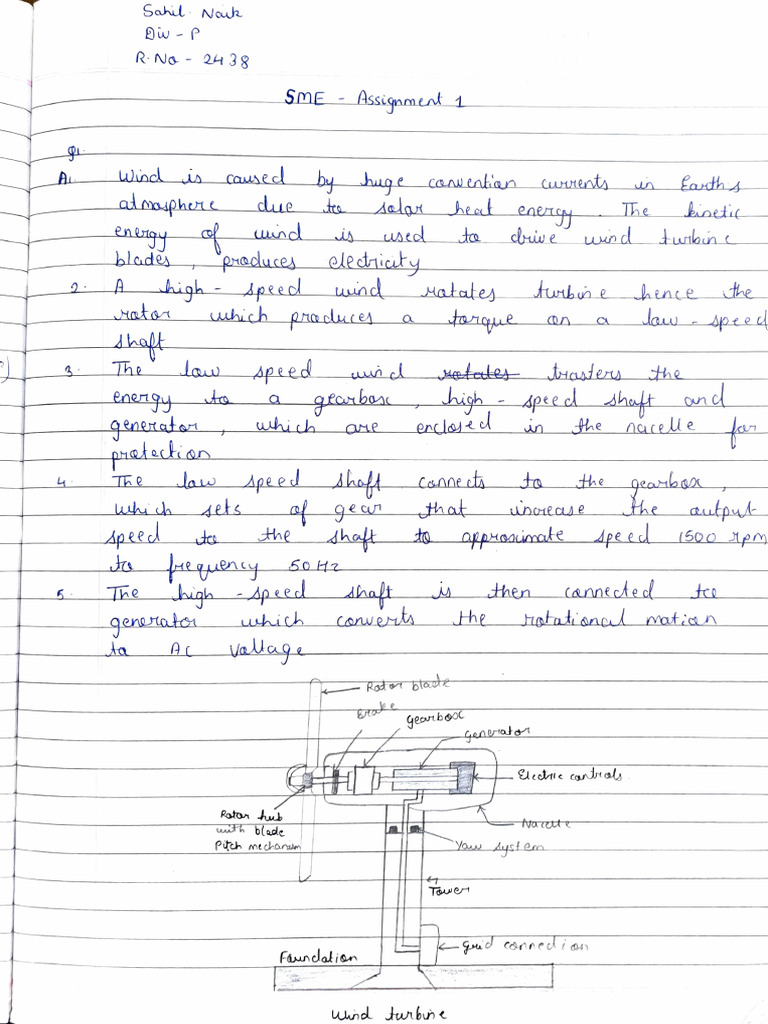 Sahil Naik
Div - P
R.No - 2438
SME - Assignment 1
Q1.
A1. Wind is caused by huge convention currents in Earth's
atmosphere due to solar heat energy. The kinetic
energy of wind is used to drive wind turbine
blades, produces electricity
2. A high-speed wind rotates turbine hence the
rotor which produces a torque on a low-speed
shaft
3. The low speed wind rotates trasters the
energy to a gearbox, high-speed shaft and
generator, which are enclosed in the nacelle for
protection
4. The low speed shaft connects to the gearbox,
which sets of gear that increase the output
speed to the shaft to approximate speed 1500 rpm
to frequency 50Hz
5. The high-speed shaft is then connected to
generator which converts the rotational motion
to AC voltage
Rotor blade
Brake
Gearbox
Generator
Electric controls
Rotor hub
with blade
Pitch mechanism
Nacelle
Yaw system
Tower
Grid connection
Foundation
Wind turbine